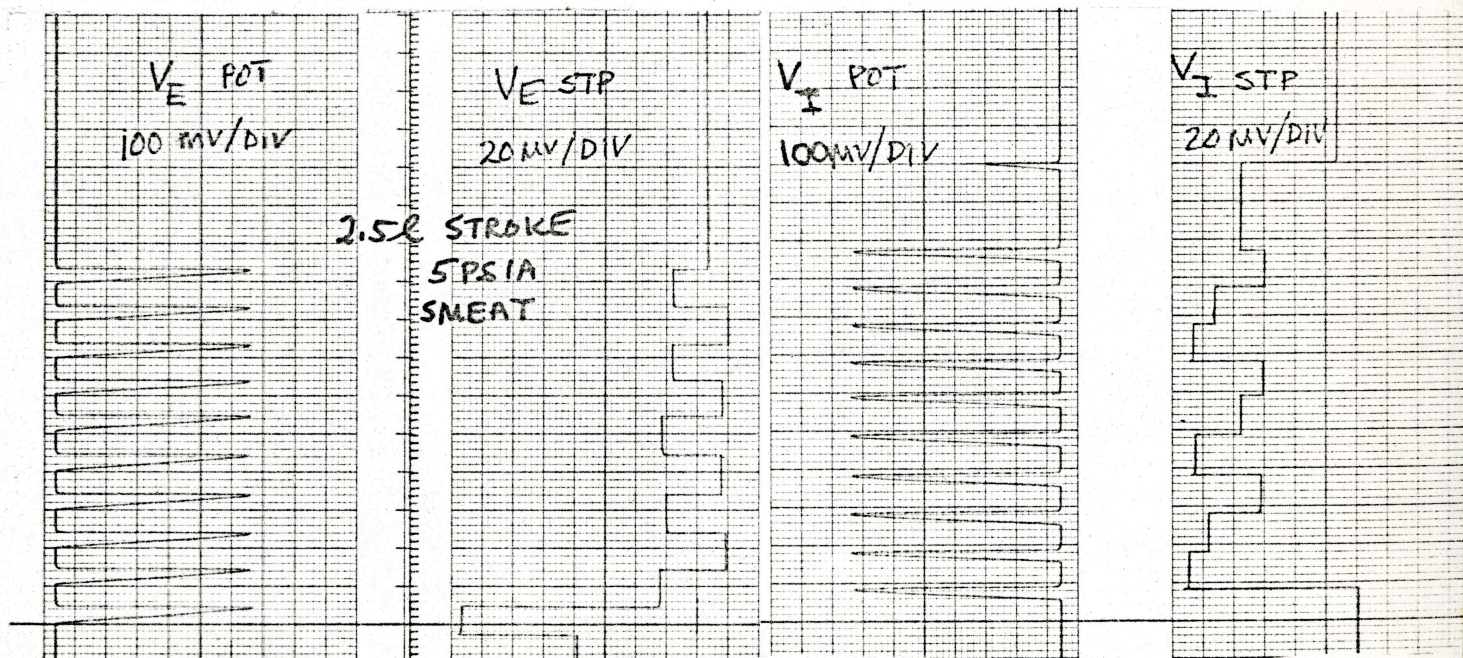 V_E POT
100 MV/DIV
V_E STP
20 MV/DIV
2.5ℓ STROKE
5 PSIA
SMEAT
V_I POT
100MV/DIV
V_I STP
20 MV/DIV